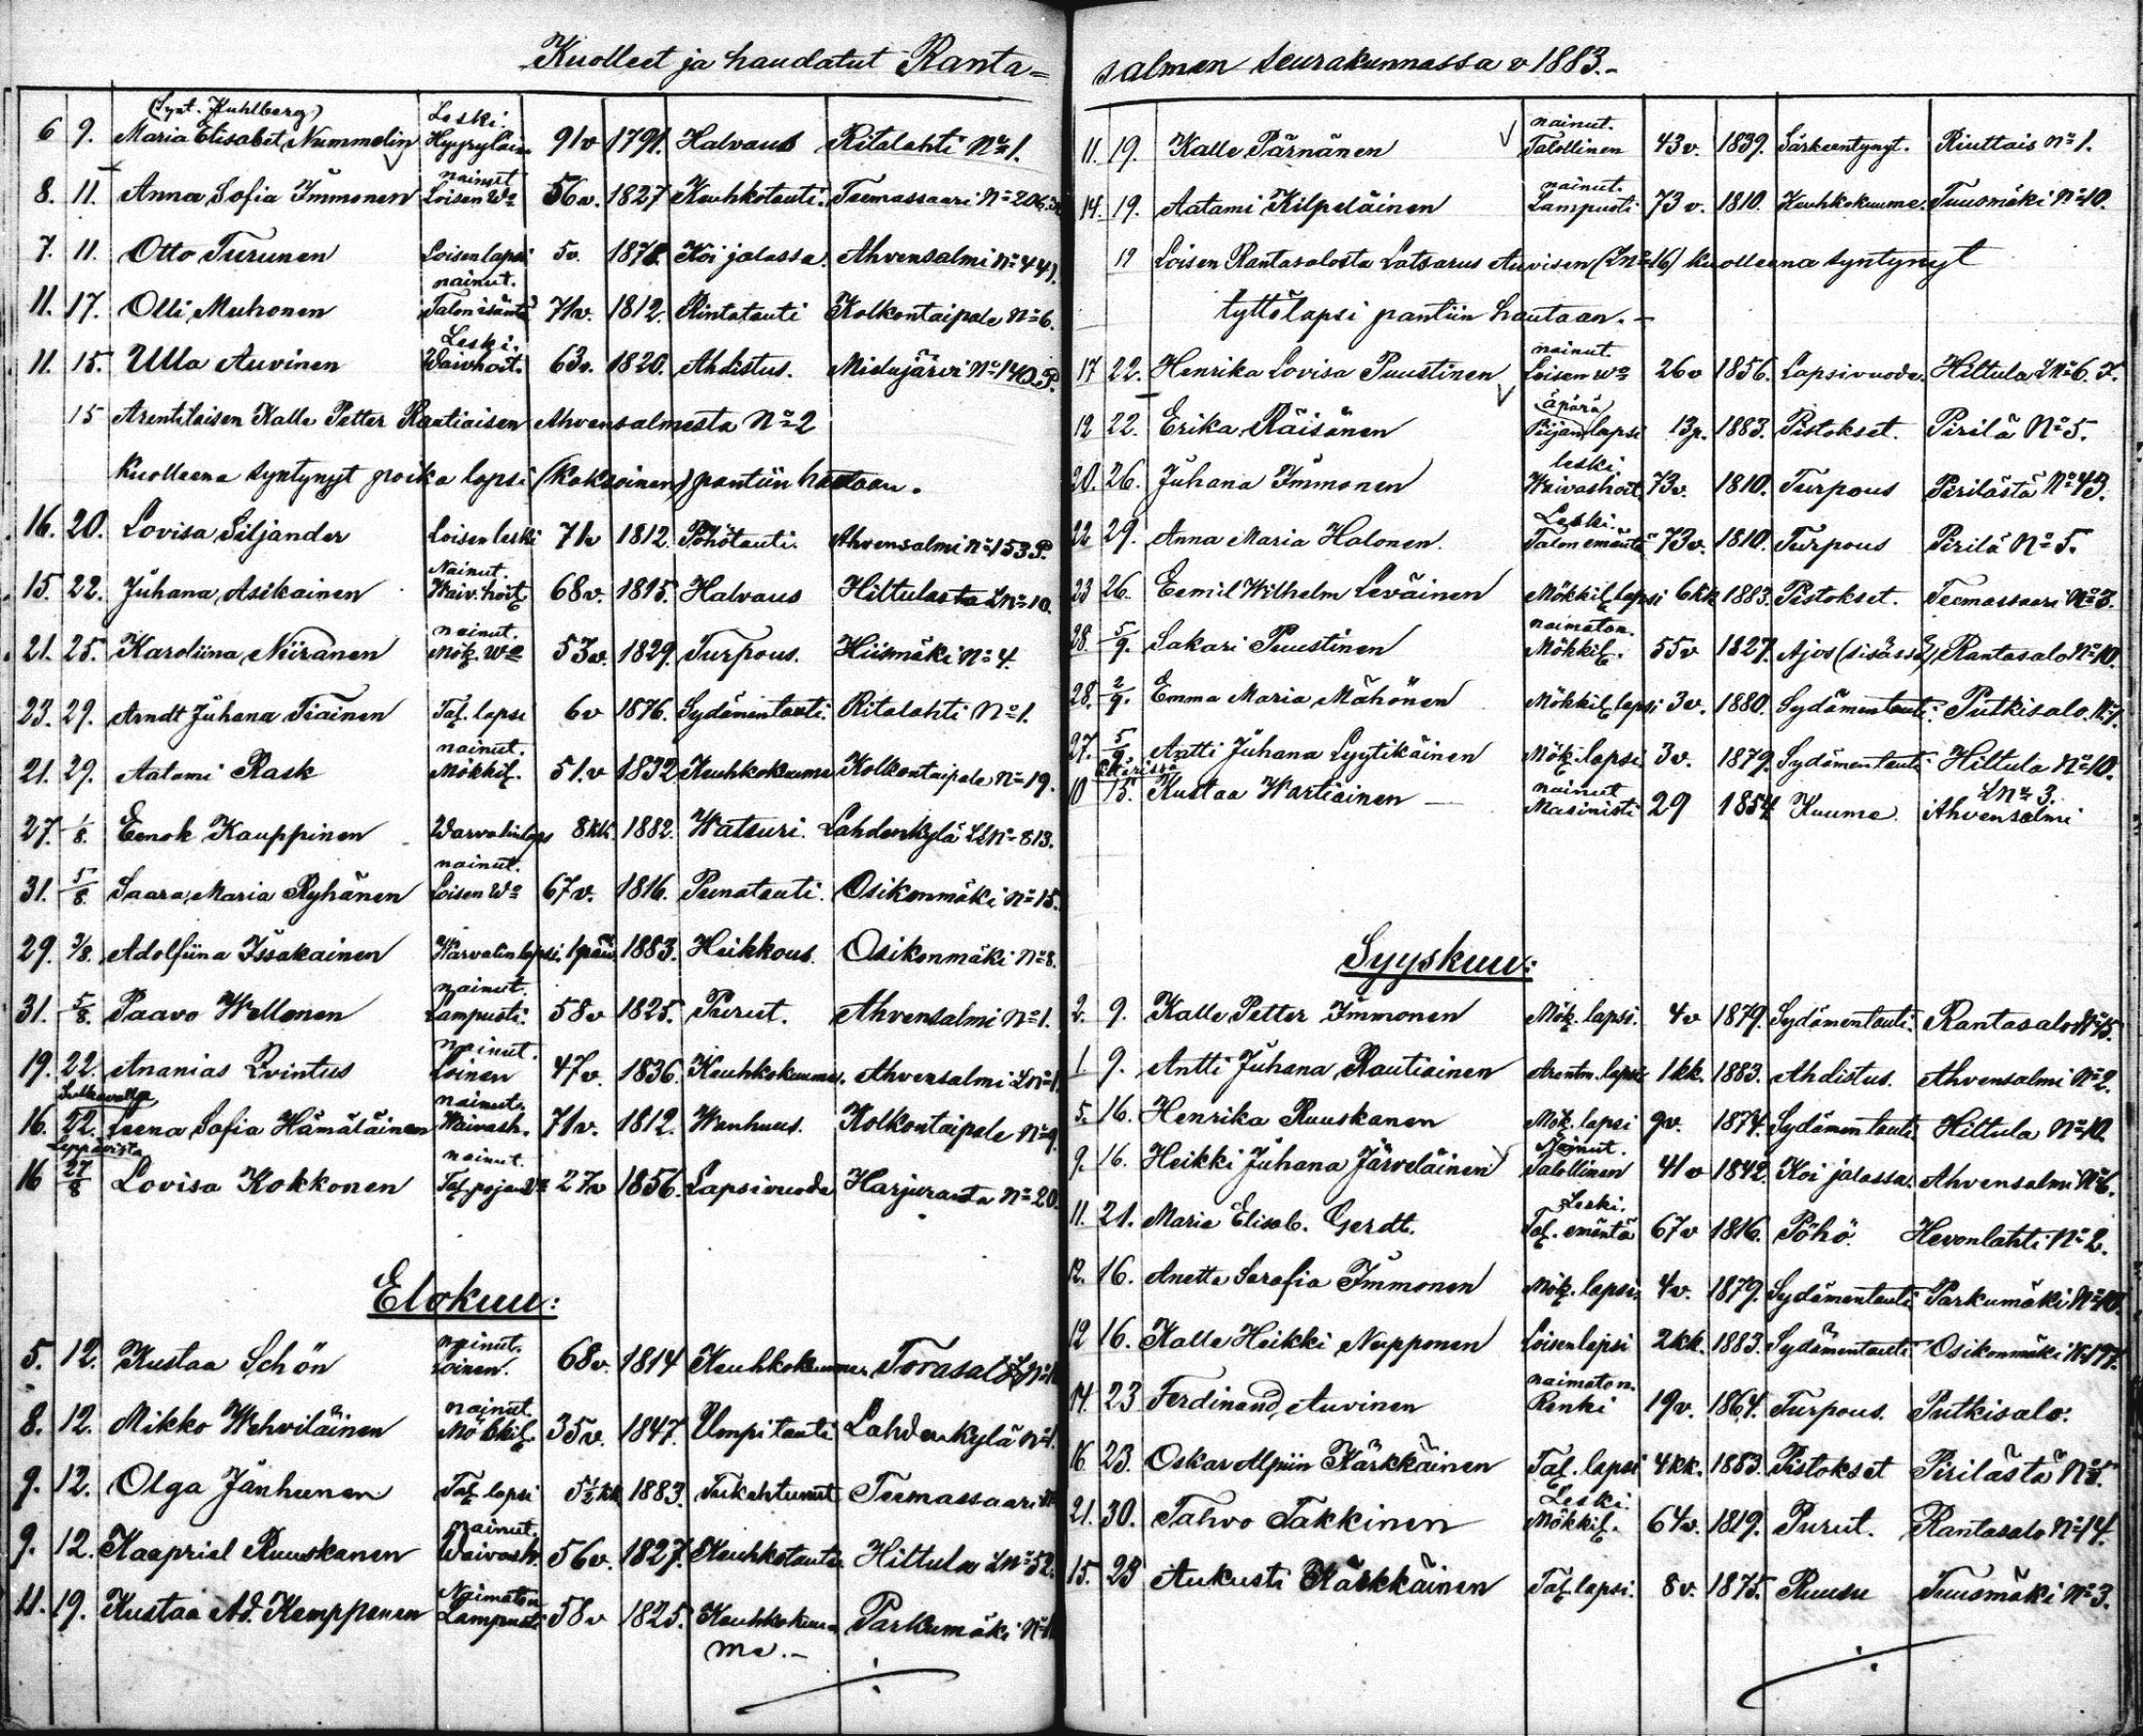 Kuolleet ja haudatut Ranta=
(Synt. Kuhlberg) Leski.
6 9. Maria Elisabet Nummelin Hyyryläin 91v 1791. Halvaus Ritalahti No 1.
nainut
8. 11. Anna Sofia Immonen Loisen Wo 56v. 1827 Keuhkotauti. Teemassaari No 206.
7. 11. Otto Turunen Loisen lapsi 5v. 1878. Koi jalassa. Ahvensalmi No 441.
nainut.
11. 17. Olli Muhonen Talon isäntä 71v. 1812. Rintatauti Kolkontaipale No 6.
Leski.
11. 15. Ulla Auvinen Waivhoit. 63v. 1820. Ahdistus. Mielujärvi No 140.P.
15 Arentilaisen Kalle Petter Rautiaisen Ahvensalmesta No 2
kuolleena syntynyt poika lapsi (kaksoinen) pantiin hautaan.
16. 20. Lovisa Siljander Loisen leski 71v 1812. Pöhötauti. Ahvensalmi No 153 P.
Nainut.
15. 22. Juhana Asikainen Waiv. hoit. 68v. 1815. Halvaus Hiltulasta LNo 10.
nainut.
21. 25. Karoliina Niiranen Mök. Wo 53v. 1829. Turpous. Hiismäki No 4.
23. 29. Arndt Juhana Tiainen Tal. lapsi 6v 1876. Sydämentauti. Ritalahti No 1.
nainut.
21. 29. Aatami Rask Mökkil. 51.v 1832 Keuhkokuume Kolkontaipale No 19.
27. 1/8. Eenok Kauppinen Warvalinlaps 8kk. 1882. Watsuri. Lahdenkylä LNo 813.
nainut.
31. 5/8. Saara Maria Ryhänen Loisen Wo 67v. 1816. Punatauti. Osikonmäki No 15.
29. 3/8. Adolfiina Issakainen Warvalinlapsi. 1päiv. 1883. Heikkous. Osikonmäki No 8.
nainut.
31. 5/8. Paavo Wellonen Lampuoti. 58v 1825. Purut. Ahvensalmi No 1.
nainut.
19. 22. Ananias Qvintus Loinen 47v. 1836. Keuhkokuume. Ahvensalmi LNo 1.
Sulkavalla nainut.
16. 22. Leena Sofia Hämäläinen Waivash. 71v. 1812. Wanhuus. Kolkontaipale No 9.
Leppävirta nainut.
16 27/8 Lovisa Kokkonen Tal. pojan Wo 27v 1856. Lapsivuode Harjuranta No 20.
Elokuu:
nainut.
5. 12. Kustaa Schön Loinen. 68v. 1814 Keuhkokuume Torasalo
nainut.
8. 12. Mikko Wehviläinen Mökkil. 35v. 1847. Umpitauti Lahdenkylä No 1.
9. 12. Olga Jänhunen Tal. lapsi 5½kk 1883. Tukehtunut Teemassaari
nainut.
9. 12. Kaapriel Ruuskanen Waivash. 56v. 1827. Keuhkotauti. Hiltula LNo 52.
Naimaton
11. 19. Kustaa Ad. Kemppanen Lampuoti 58v 1825. Keuhkokuu= Parkumäki
me.-
salmen seurakunnassa v 1883.-
nainut.
11. 19. Kalle Pärnänen Talollinen 43v. 1839. Särkeentynyt. Riuttais No 1.
nainut.
14. 19. Aatami Kilpeläinen Lampuoti 73v. 1810. Keuhkokuume. Tuusmäki No 10.
19 Loisen Rantasalosta Latsarus Auvisen (LNo 16) kuolleena syntynyt
tyttölapsi pantiin hautaan.-
nainut.
17 22. Henrika Lovisa Puustinen Loisen Wo 26v 1856. Lapsivuode. Hiltula LNo 6.
äpärä
12 22. Erika Räisänen Piijan lapsi 13p. 1883. Pistokset. Pirilä No 5.
leski.
20. 26. Juhana Immonen Waivashoit. 73v. 1810. Turpous Pirilästä No 43.
Leski.
22 29. Anna Maria Halonen. Talon emäntä 73v. 1810. Turpous Pirilä No 5.
23 26. Eemil Wilhelm Leväinen Mökkil. lapsi 6kk 1883. Pistokset. Teemassaari No 3.
naimaton.
28. 5/9. Sakari Puustinen Mökkil. 55v 1827. Ajos (sisässä) Rantasalo No 10.
28. 2/9. Emma Maria Mähönen Mökkil. lapsi 3v. 1880. Sydämentauti. Putkisalo. No 1.
27. 5/9 Antti Juhana Lyytikäinen Mök. lapsi. 3v. 1879. Sydämentauti Hiltula No 10.
nainut LNo 3.
10 15. Kustaa Wartiainen - Masinisti 29 1854 Kuume. Ahvensalmi
Syyskuu:
2. 9. Kalle Petter Immonen Mök. lapsi. 4v 1879. Sydämentauti. Rantasalo No 15.
1. 9. Antti Juhana Rautiainen Arentm. lapsi 1kk. 1883. Ahdistus. Ahvensalmi No 2.
5. 16. Henrika Ruuskanen Mök. lapsi 9v. 1874. Sydämentauti Hiltula No 10.
Nainut.
9. 16. Heikki Juhana Järveläinen Talollinen 41v 1842. Koi jalassa. Ahvensalmi No 6.
Leski.
11. 21. Maria Elisab. Gerdt. Tal. emäntä 67v 1816. Pöhö. Hevonlahti No 2.
12. 16. Anette Serafia Immonen Mök. lapsi. 4v. 1879. Sydämentauti Parkumäki No 10.
12 16. Kalle Heikki Nupponen Loisen lapsi 2kk. 1883. Sydämentauti Osikonmäki No 197.
naimaton.
14. 23 Ferdinand Auvinen Renki 19v. 1864. Turpous. Putkisalo.
16 23. Oskar Alpiin Kärkkäinen Tal. lapsi 4kk. 1883. Pistokset Pirilästä No 1.
Leski.
21. 30. Tahvo Takkinen Mökkil. 64v. 1819. Purut. Rantasalo No 14.
15. 23 Aukusti Kärkkäinen Tal. lapsi. 8v. 1875. Ruusu Tuusmäki No 3.